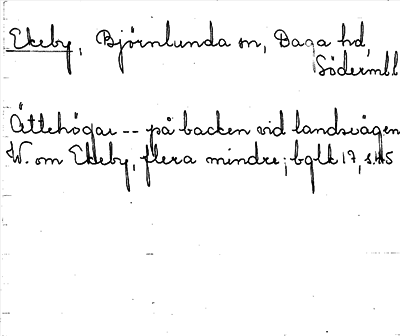 Ekeby, Björnlunda sn, Daga hd,
Södermll
Ättehögar -- på backen vid landsvägen
W. om Ekeby, flera mindre; bglk 17, s. 45